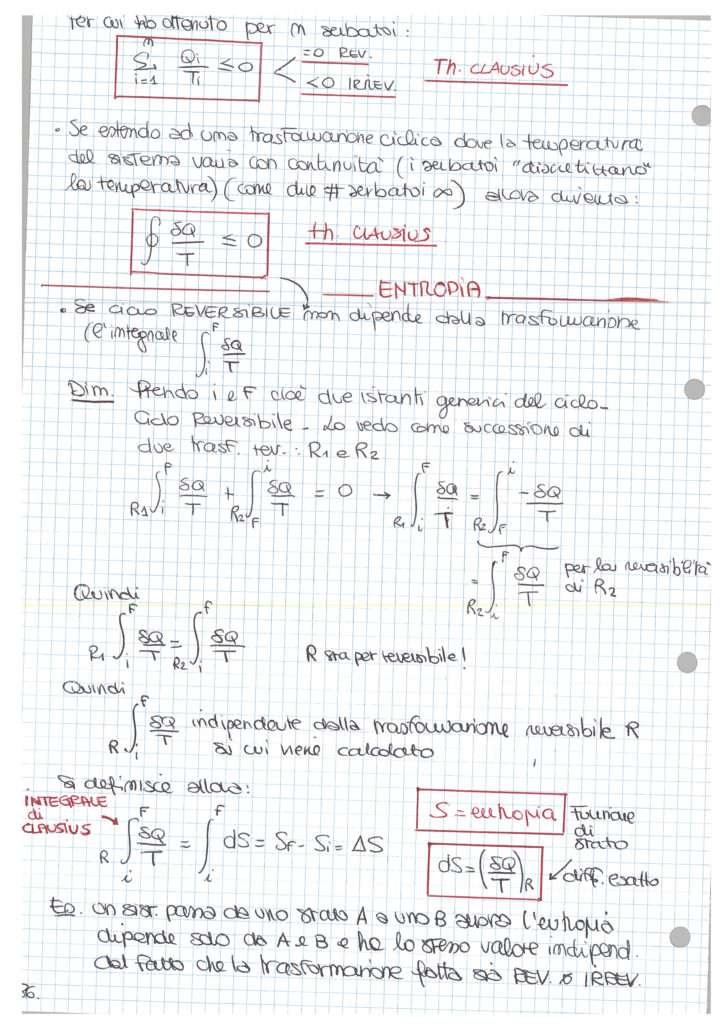 Per cui ho ottenuto per n serbatoi:
n
Σ Qi/Ti ≤ 0 < =0 REV.
i=1 <0 IRREV.
Th. CLAUSIUS
• Se estendo ad una trasformazione ciclica dove la temperatura
del sistema varia con continuità (i serbatoi "discretizzano"
la temperatura) (come due # serbatoi ∞) allora diventa:
∮ δQ/T ≤ 0 th. CLAUSIUS
ENTROPIA
• Se ciclo REVERSIBILE non dipende dalla trasformazione
(l'integrale ∫_i^F δQ/T
Dim. Prendo i e F cioè due istanti generici del ciclo-
Ciclo Reversibile - Lo vedo come successione di
due trasf. rev.: R1 e R2
R1∫_i^F δQ/T + R2∫_F^i δQ/T = 0 → R1∫_i^F δQ/T = R2∫_F^i -δQ/T
= R2∫_i^F δQ/T per la reversibilità
di R2
Quindi
R1∫_i^F δQ/T = R2∫_i^f δQ/T R sta per reversibile!
Quindi
R∫_i^f δQ/T indipendente dalla trasformazione reversibile R
su cui viene calcolato
Si definisce allora:
INTEGRALE
di
CLAUSIUS
R∫_i^F δQ/T = ∫_i^f dS = Sf - Si = ΔS
S = entropia funzione
di
stato
dS = (δQ/T)R ↙ diff. esatto
Es. Un sist. passa da uno stato A a uno B allora l'entropia
dipende solo da A e B e ha lo stesso valore indipend.
dal fatto che la trasformazione fatta sia REV. o IRREV.
36.